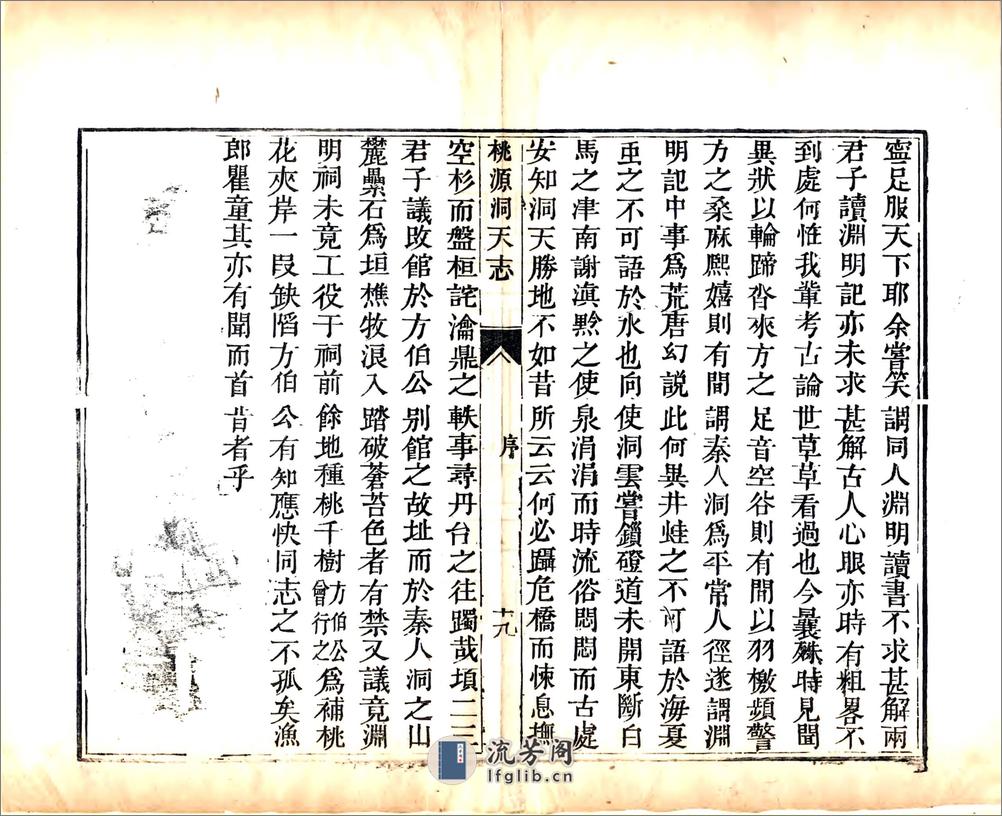 寧足服天下耶余嘗笑謂同人淵明讀書不求甚解兩
君子讀淵明記亦未求甚解古人心眼亦時有粗畧不
到處何恠我輩考古論世草草看過也今曩殊時見聞
異狀以輪蹄沓來方之足音空谷則有閒以羽檄頻警
方之桑麻熙嬉則有閒謂秦人洞爲平常人徑遂謂淵
明記中事爲荒唐幻說此何異井蛙之不可語於海夏
虫之不可語於水也向使洞雲嘗鎖磴道未開東斷白
馬之津南謝滇黔之使泉涓涓而時流俗悶悶而古處
安知洞天勝地不如昔所云云何必躡危橋而悚息撫
桃源洞天志 序 十九
空杉而盤桓詫瀹鼎之軼事尋丹台之往躅哉頃二三
君子議改館於方伯公別館之故址而於秦人洞之山
麓壘石爲垣樵牧浪入踏破蒼苔色者有禁又議竟淵
明祠未竟工役于祠前餘地種桃千樹方伯公曾行之爲補桃
花夾岸一段缺䧟方伯公有知應快同志之不孤矣漁
郎瞿童其亦有聞而首肯者乎
流芳阁
lfglib.cn